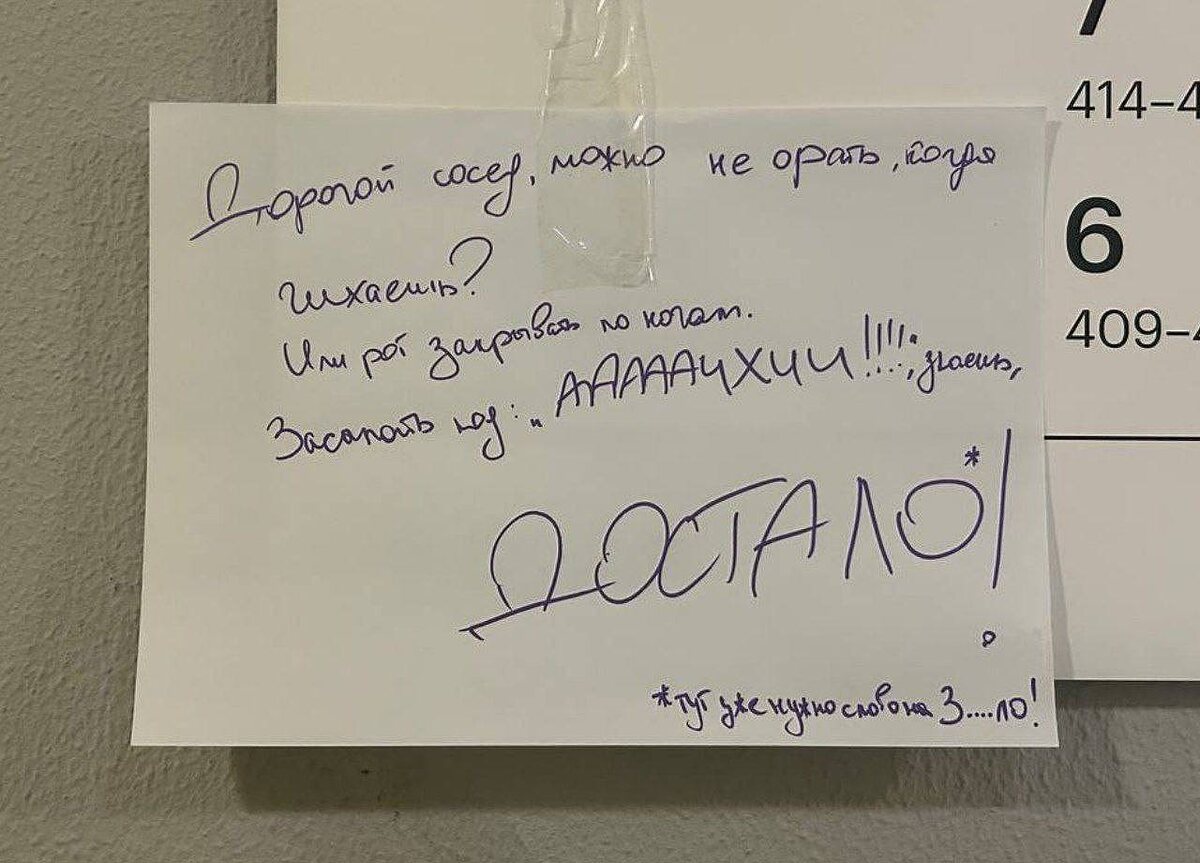 7
414–4
6
409–4
Дорогой сосед, можно не орать, когда
чихаешь?
Или рот закрывать по ночам.
Засыпать под: „ААААAЧХИИ!!!!!, знаешь,
ДОСТАЛО*!
*тут уже нужно слово на З....ЛО!